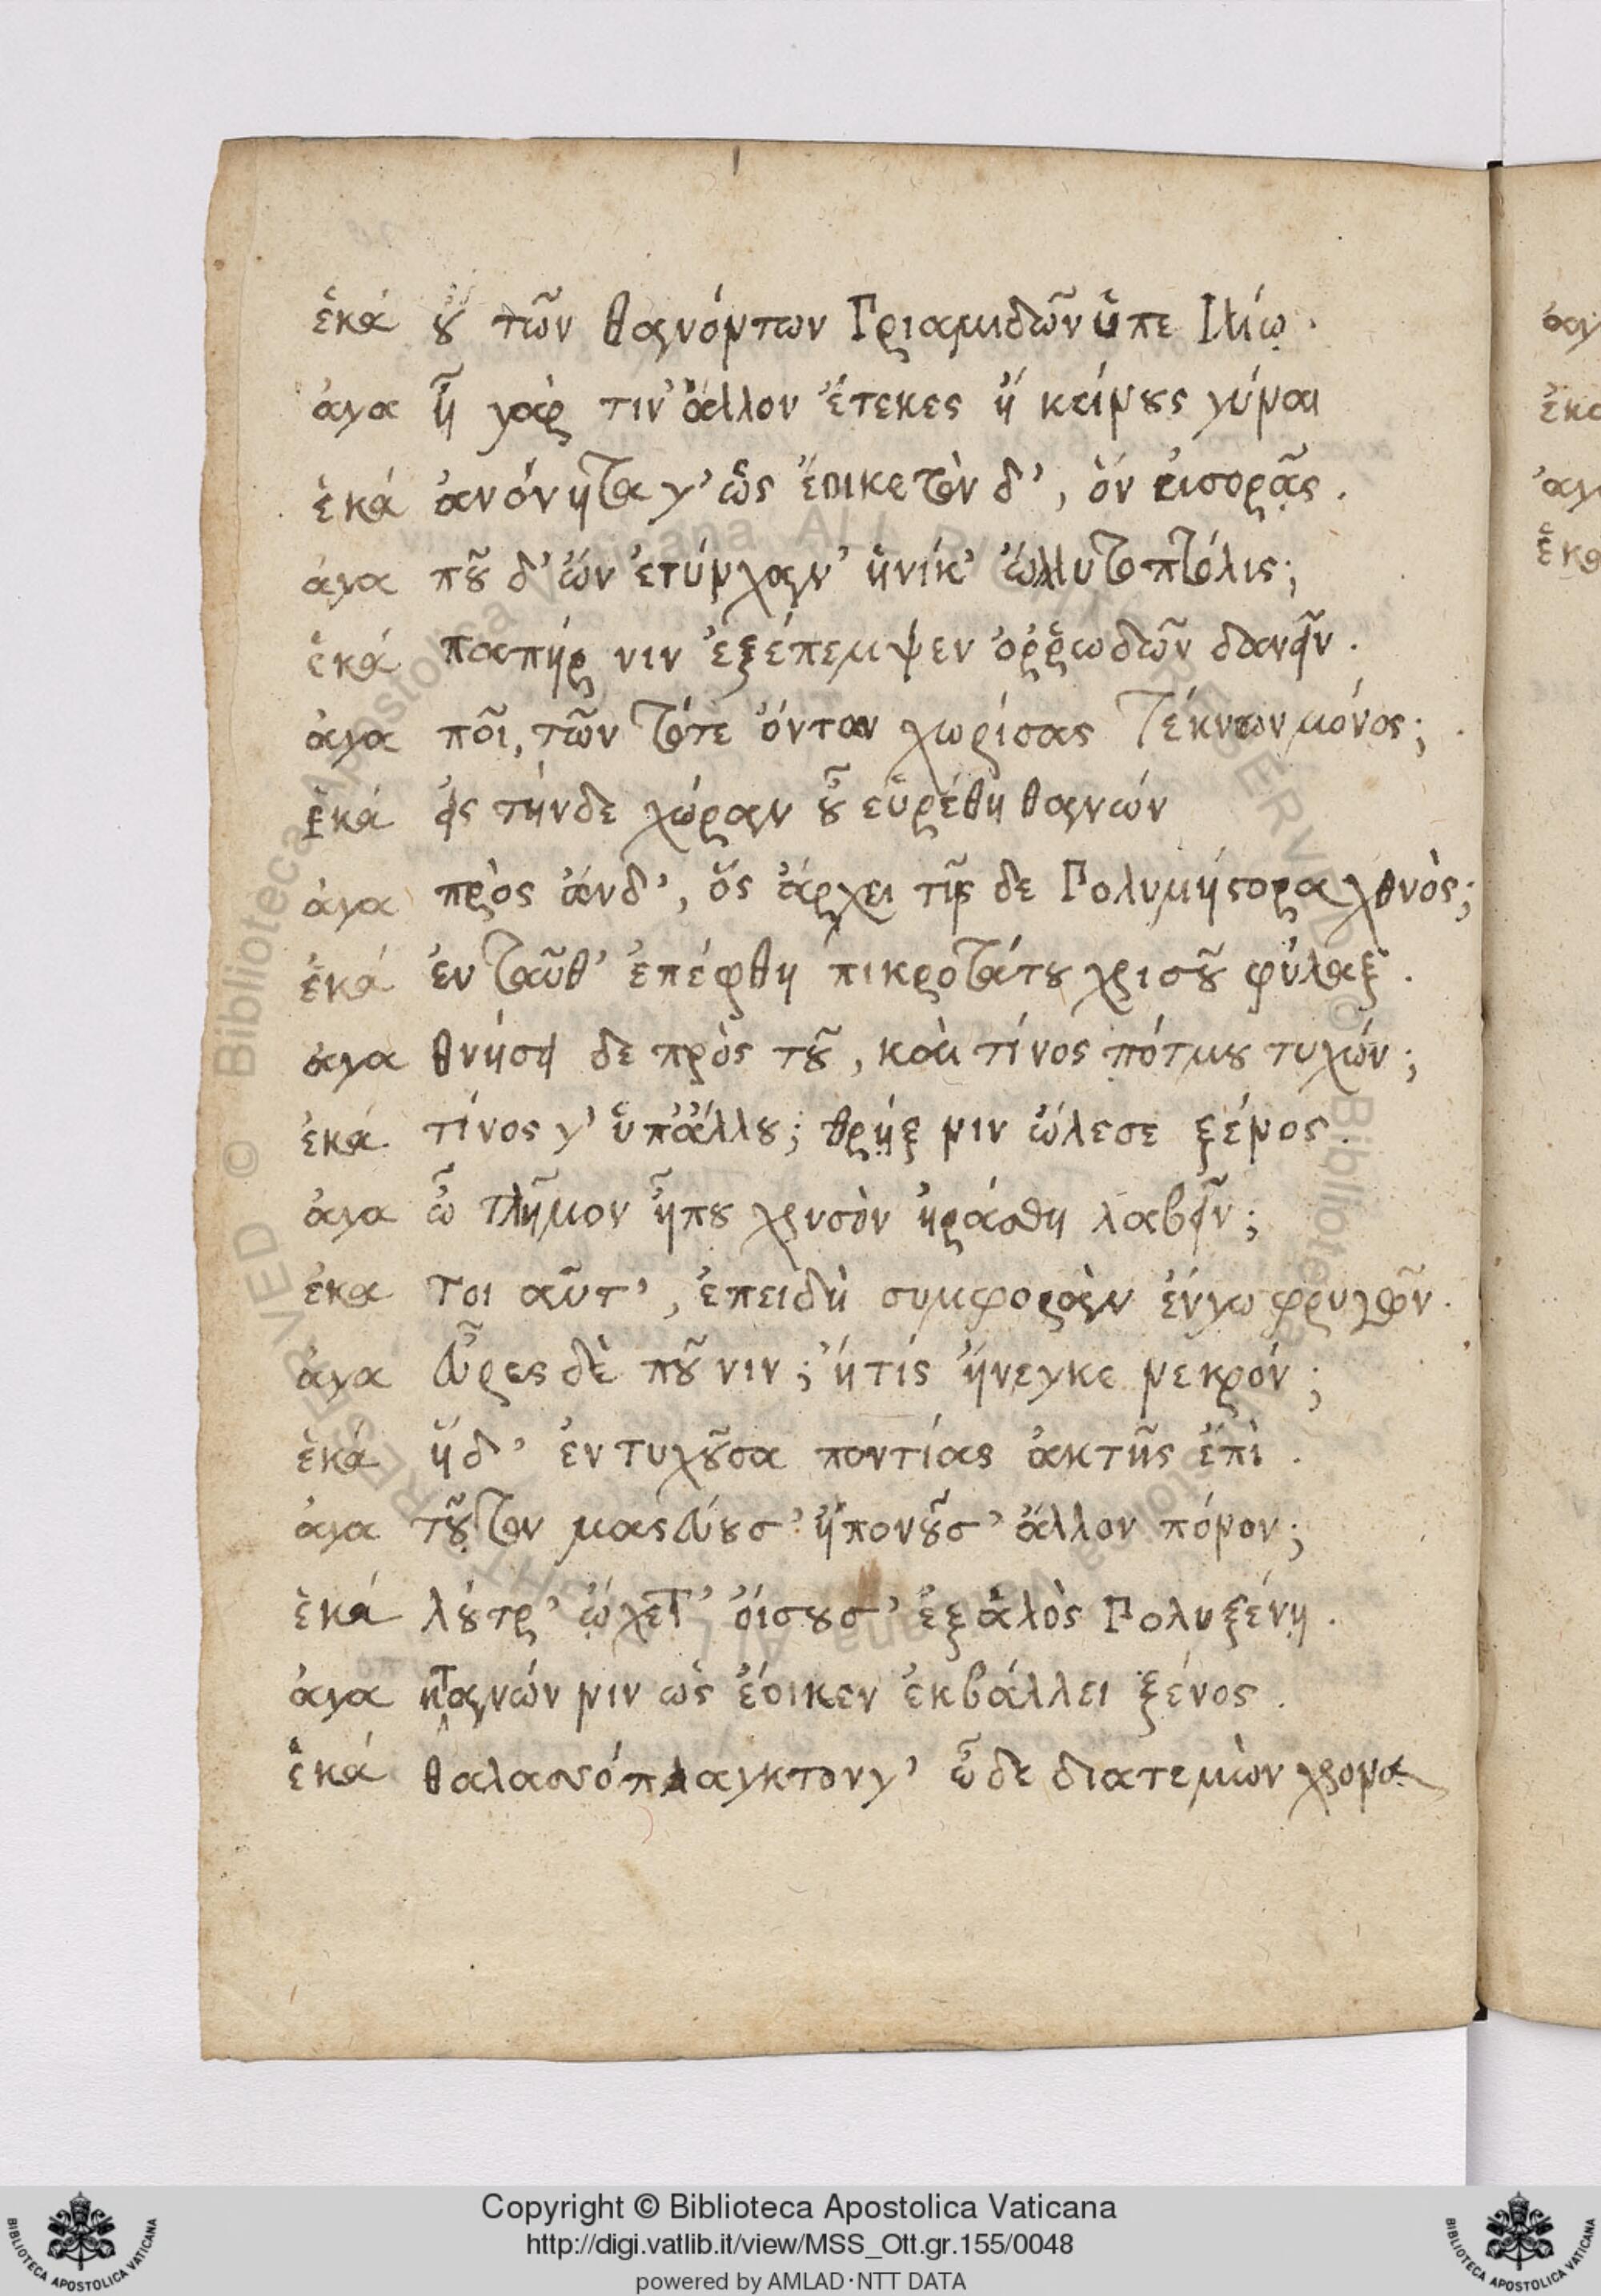 ἑκά οὐ τῶν θανόντων Πριαμιδῶν ὑπ' ἐ Ιλίῳ.
ἀγα ἦ γάρ τιν' ἄλλον ἔτεκες ἢ κείνους γύναι
ἑκά ἀνόνητά γ' ὡς ἔοικε τὸν δ', ὃν εἰσορᾷς.
ἀγα ποῦ δ' ὢν ἐτύγχαν' ἡνίκ' ὤλλυτο πτόλις;
ἑκά πατήρ νιν ἐξέπεμψεν ὀῤῥωδῶν θανεῖν.
ἀγα ποῖ, τῶν τότε ὄντων χωρίσας τέκνων μόνος;
ἑκά εἰς τήνδε χώραν οὗ εὑρέθη θανών
ἀγα πρὸς ἄνδ', ὃς ἄρχει τῆς δε Πολυμήστορα χθνὸς;
ἑκά ἐν ταῦθ' ἐπέφθη πικροτάτου χρισοῦ φύλαξ.
ἀγα θνήσει δε πρὸς τοῦ, καὶ τίνος πότμου τυχών;
ἑκά τίνος γ' ὑπ' ἄλλου; θρήξ νιν ὤλεσε ξένος.
ἀγα ὦ τλῆμον ἦπου χρυσὸν ἠράσθη λαβεῖν;
ἑκα τοι αῦτ', ἐπειδὴ συμφορὰν ἔγνω φρυγῶν.
ἀγα εὗρες δὲ ποῦ νιν; ἢ τίς ἤνεγκε νεκρόν;
ἑκά ἥδ' ἐντυχοῦσα ποντίας ἀκτῆς ἔπι.
ἀγα τοῦτον μαστεύουσ' ἢ πονοῦσ' ἄλλον πόνον;
ἑκά λούτρ' ᾤχετ' οἴσουσ' ἐξ ἁλὸς Πολυξένῃ.
ἀγα κτανών νιν ὡς ἔοικεν ἐκβάλλει ξένος.
ἑκά θαλασσόπλαγκτον γ' ὧδε διατεμὼν χρόνα
Copyright © Biblioteca Apostolica Vaticana
http://digi.vatlib.it/view/MSS_Ott.gr.155/0048
powered by AMLAD·NTT DATA